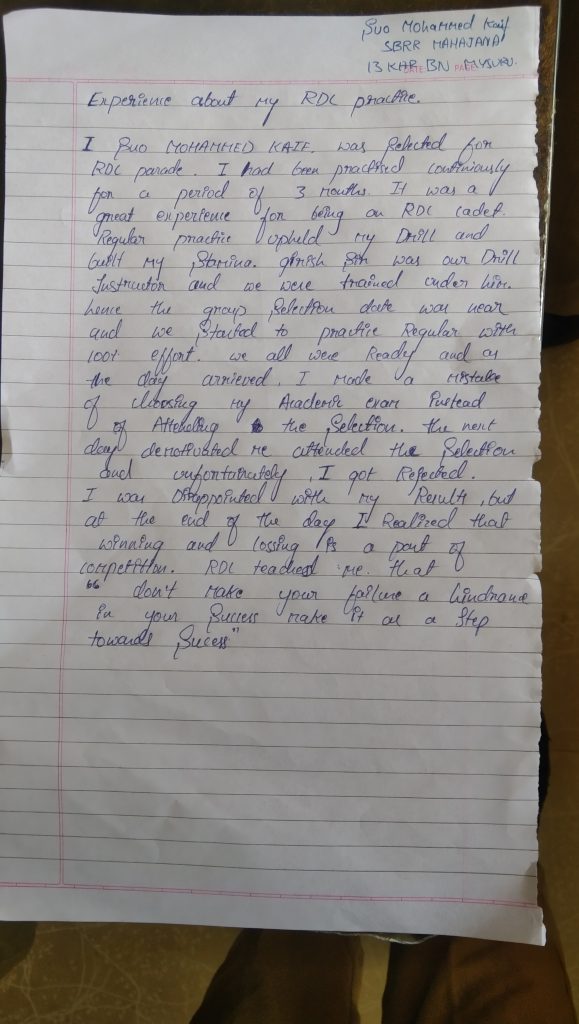 Suo Mohammed Kaif
SBRR MAHAJANA
13 KAR BN MYSURU.
Experience about my RDC practice.
I Suo MOHAMMED KAIF. was Selected for
RDC parade. I had been practised continiously
for a period of 3 months. It was a
great experience for being an RDC cadet.
Regular practice upheld my Drill and
built my Stamina. Girish Sir was our Drill
Instructor and we were trained under him.
hence the group Selection date was near
and we Started to practice Regular with
100% effort. we all were Ready and as
the day arrieved. I made a mistake
of choosing my Academic exam Instead
of Attending the Selection. the next
day demotivated me attended the Selection
and unfortainately, I got Rejected.
I was Disappointed with my Result, but
at the end of the day I Realized that
winning and lossing is a part of
competition. RDC teached me. that
"don't make your failure a hindrance
in your Success make it as a Step
towards Sucess"